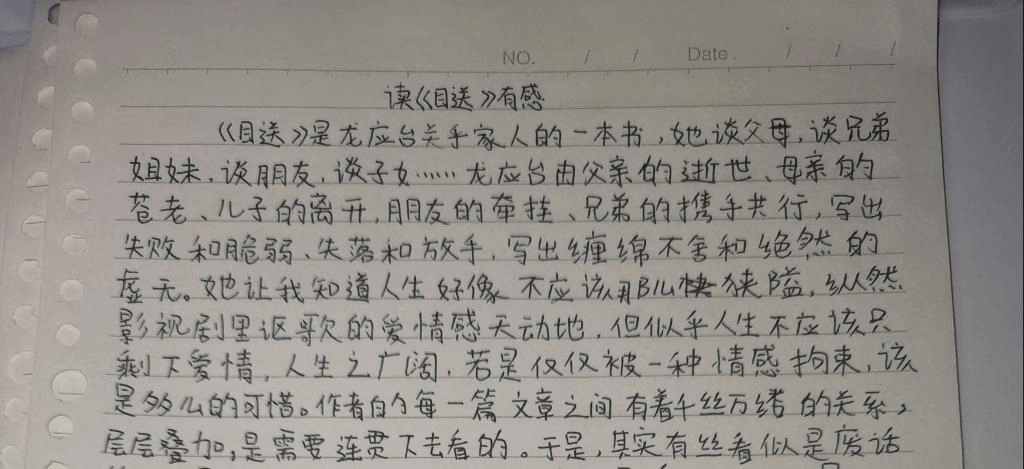 NO. / / Date. / / /
读《目送》有感
《目送》是龙应台关乎家人的一本书，她谈父母，谈兄弟
姐妹，谈朋友，谈子女……龙应台由父亲的逝世、母亲的
苍老、儿子的离开，朋友的牵挂、兄弟的携手共行，写出
失败和脆弱、失落和放手，写出缠绵不舍和绝然的
虚无。她让我知道人生好像不应该那么狭隘，纵然
影视剧里讴歌的爱情感天动地，但似乎人生不应该只
剩下爱情，人生之广阔，若是仅仅被一种情感拘束，该
是多么的可惜。作者的每一篇文章之间有着千丝万缕的关系，
层层叠加，是需要连贯下去看的。于是，其实有丝看似是废话